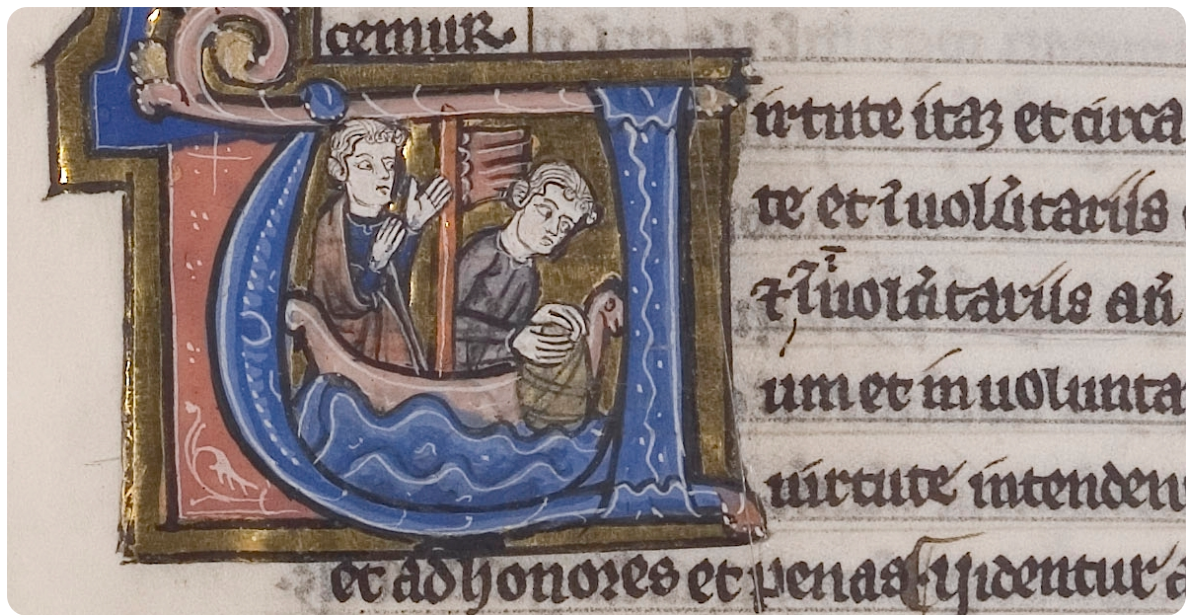 cemur.
Uirtute itaꝫ et circa
te et ĩuolũtariis
⁊ ĩuolũtariis aũ
um et inuolunta
uirtute intenden
et ad honores et penas